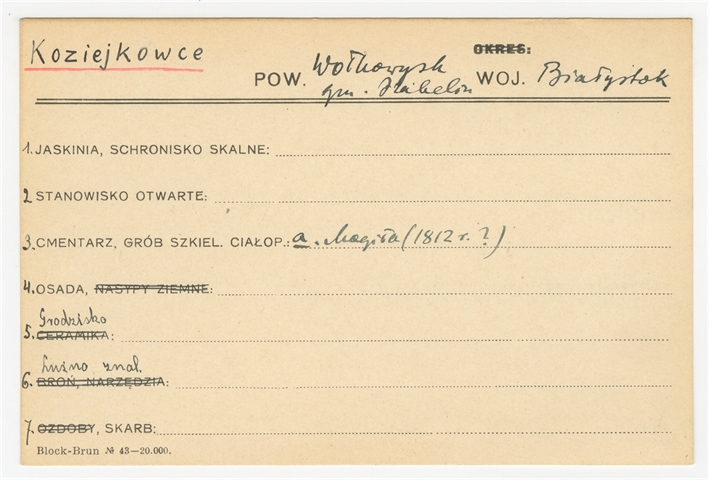 Koziejkowce
OKRES:
POW. Wołkowysk WOJ. Białystok
gm. Izabelin
1. JASKINIA, SCHRONISKO SKALNE:
2 STANOWISKO OTWARTE:
3. CMENTARZ, GRÓB SZKIEL. CIAŁOP.: a. Mogiła (1812 r. ?)
4. OSADA, NASYPY ZIEMNE:
Grodzisko
5. CERAMIKA:
Luźno znal.
6. BROŃ, NARZĘDZIA:
7. OZDOBY, SKARB:
Block-Brun № 43—20.000.